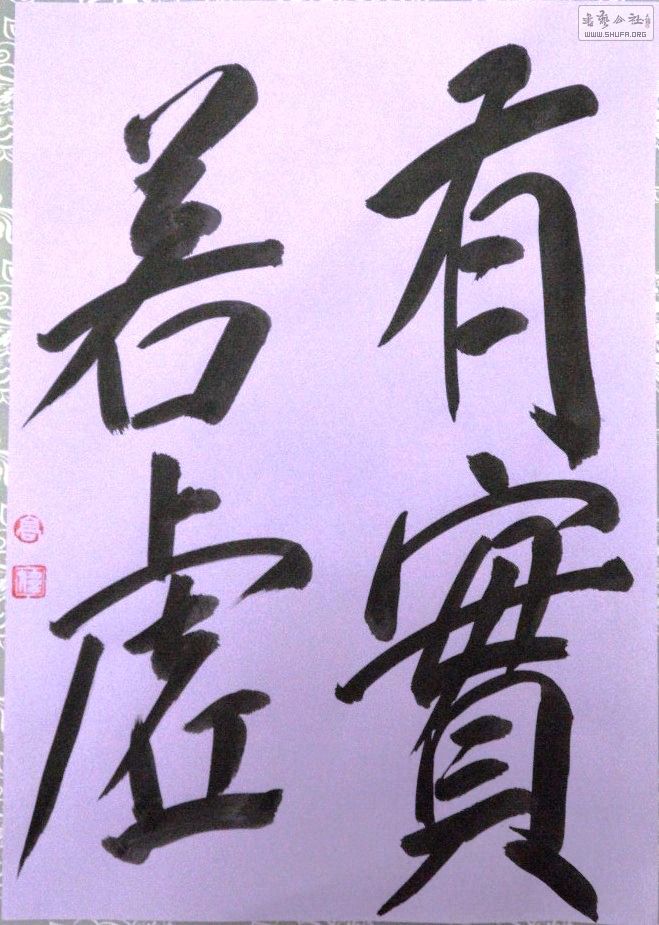 有實
若虛
书艺公社
WWW.SHUFA.ORG